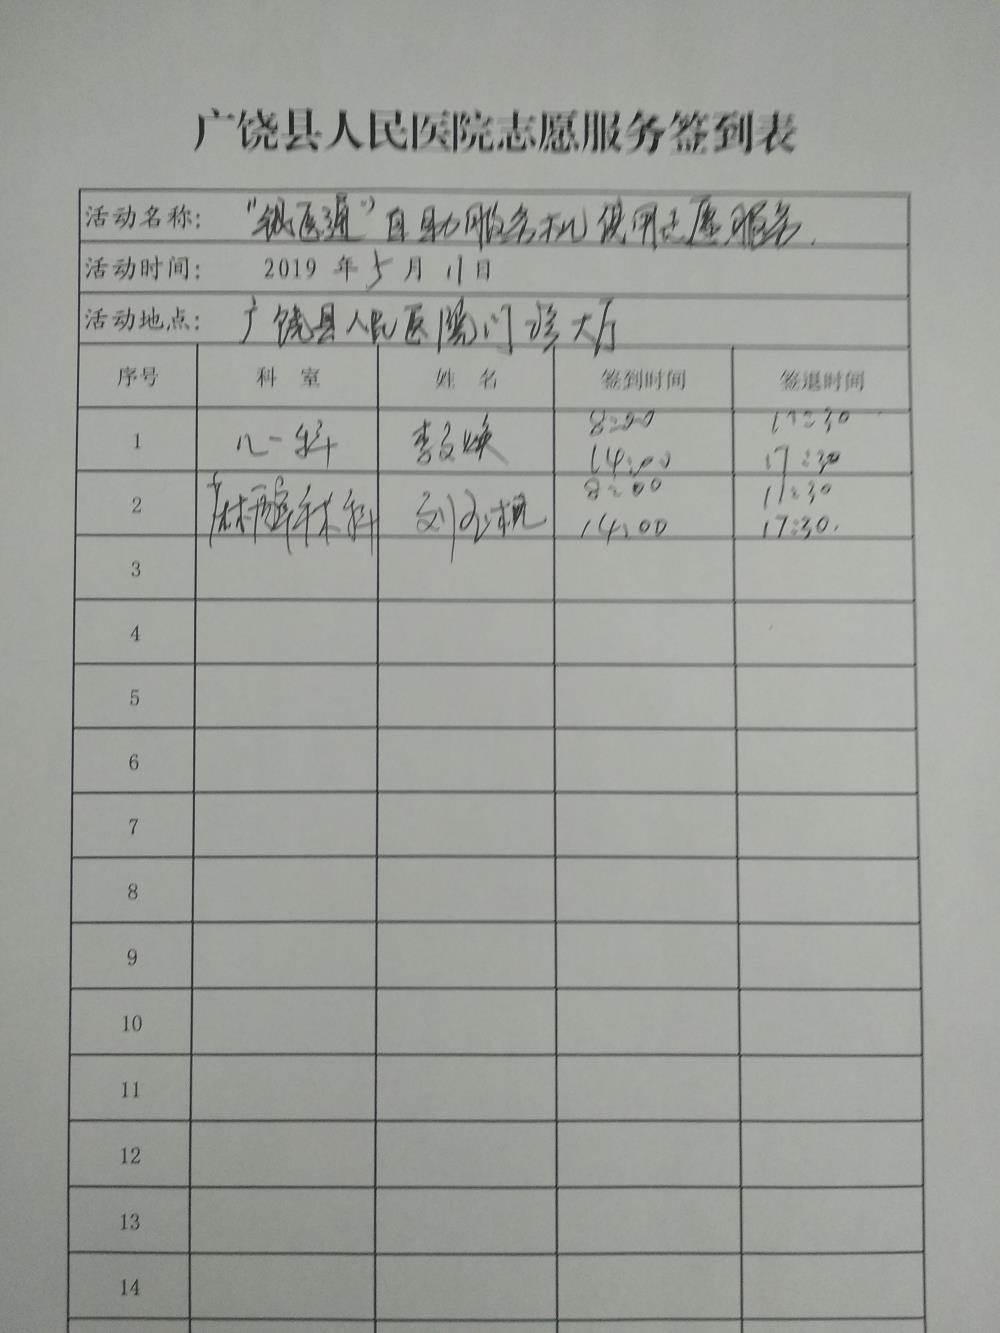 广饶县人民医院志愿服务签到表
活动名称: "银医通"自助服务机使用志愿服务.
活动时间: 2019 年 5 月 11 日
活动地点: 广饶县人民医院门诊大厅
序号 科 室 姓 名 签到时间 签退时间
1 儿一科 李文焕 8:00 11:30
14:00 17:30
2 麻醉手术科 刘 8:00 11:30
14:00 17:30.
3
4
5
6
7
8
9
10
11
12
13
14